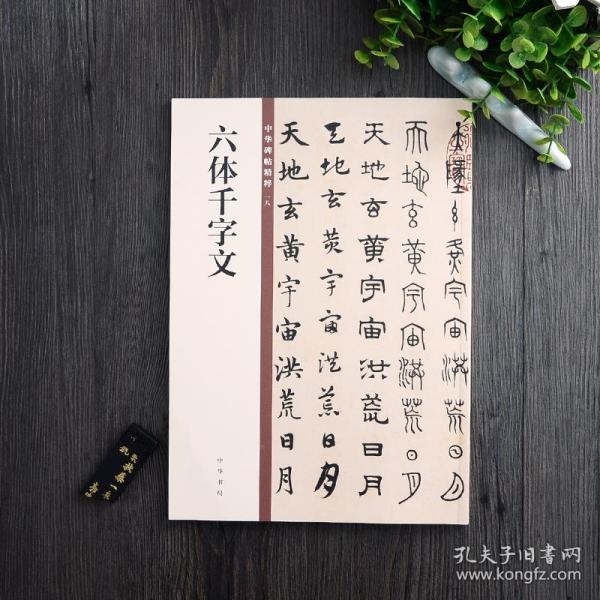 六体千字文
中华碑帖精粹 一八
中华书局
天地玄黄宇宙洪荒日月
天地玄黄宇宙洪荒日月
天地玄黄宇宙洪荒日月
天地玄黄宇宙洪荒日月
天地玄黄宇宙洪荒日月
孔夫子旧書网
www.kongfz.com